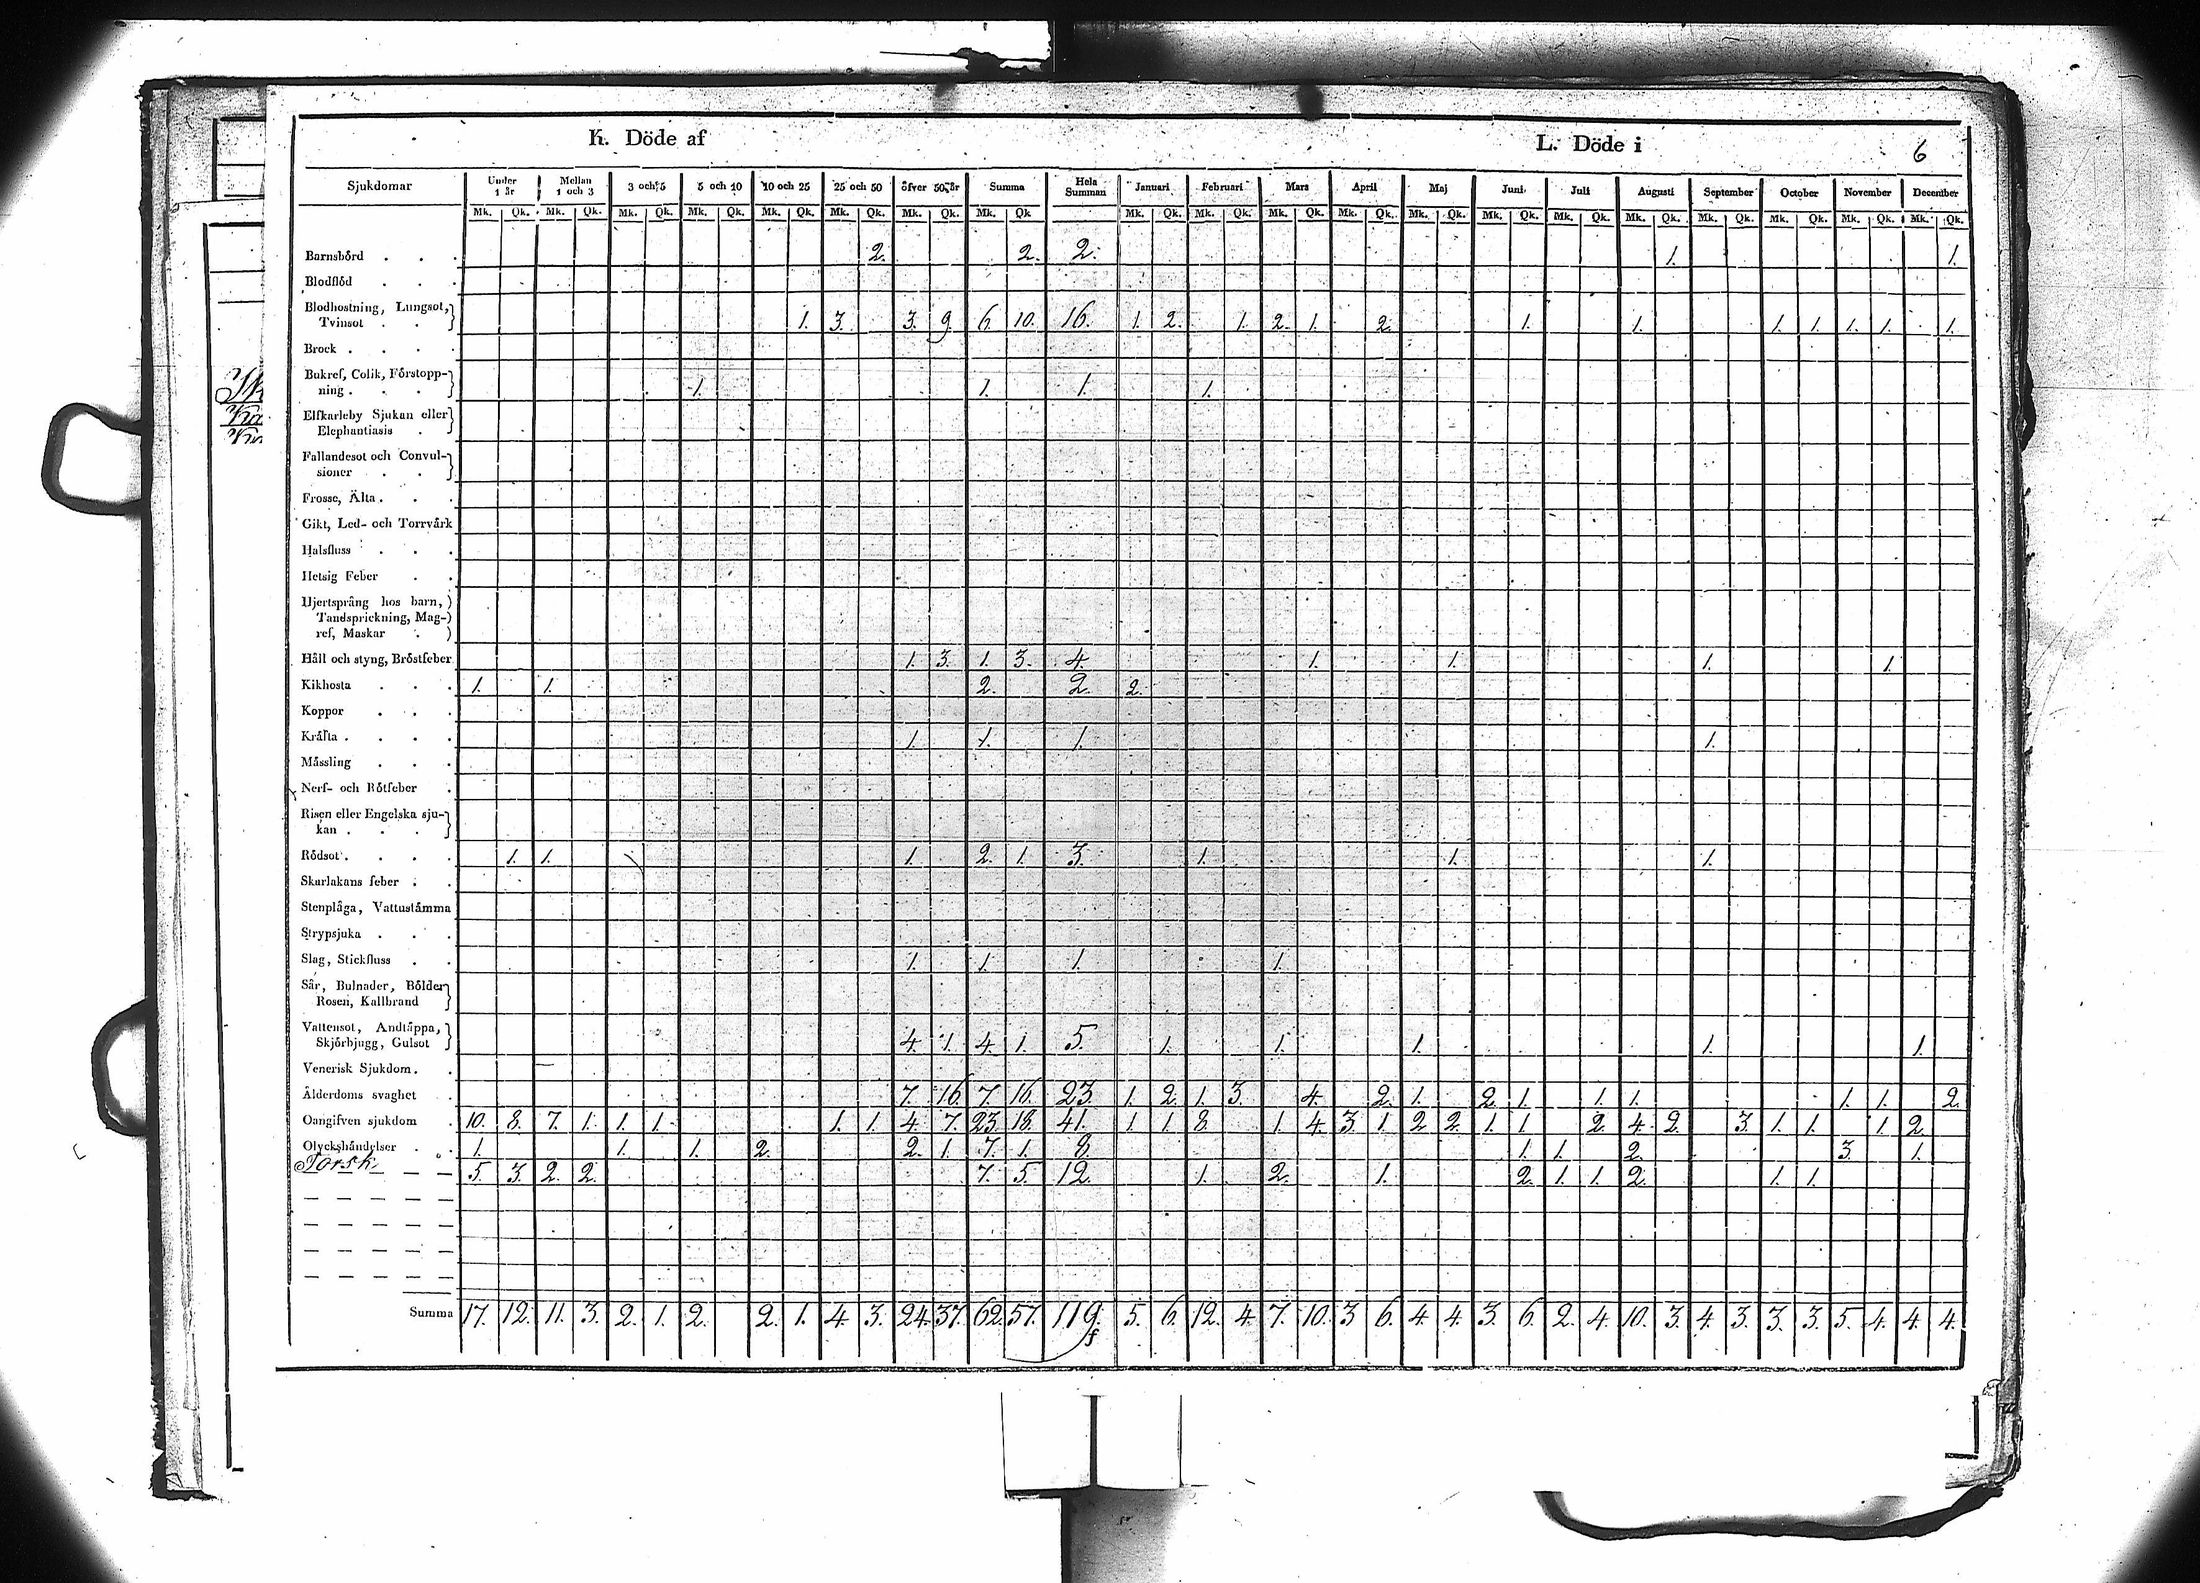 K. Döde af
L. Döde i
6
Sjukdomar Under 1 år Mellan 1 och 3 3 och 5 5 och 10 10 och 25 25 och 50 öfver 50 år Summa Hela Summan Januari Februari Mars April Maj Juni Juli Augusti September October November December
Mk. Qk. Mk. Qk. Mk. Qk. Mk. Qk. Mk. Qk. Mk. Qk. Mk. Qk. Mk. Qk Mk. Qk. Mk. Qk. Mk. Qk. Mk. Qk. Mk. Qk. Mk. Qk. Mk. Qk. Mk. Qk. Mk. Qk. Mk. Qk. Mk. Qk. Mk. Qk.
Barnsbörd . . . 2. 2. 2. 1. 1.
Blodflöd . . .
Blodhostning, Lungsot,
Tvinsot . . 1. 3. 3. 9. 6. 10. 16. 1. 2. 1. 2. 1. 2. 1. 1. 1. 1. 1. 1. 1.
Brock . . . .
Bukref, Colik, Förstopp-
ning . . . 1. 1. 1. 1.
Elfkarleby Sjukan eller
Elephantiasis .
Fallandesot och Convul-
sioner . .
Frosse, Älta . . .
Gikt, Led- och Torrvärk
Halsfluss . . .
Hetsig Feber . .
Hjertsprång hos barn,
Tandsprickning, Mag-
ref, Maskar .
Håll och styng, Bröstfeber 1. 3. 1. 3. 4. 1. 1. 1. 1.
Kikhosta . . . 1. 1. 2. 2. 2.
Koppor . . .
Kräfta . . . . 1. 1. 1. 1.
Mässling . . .
Nerf- och Rötfeber .
Risen eller Engelska sju-
kan . . .
Rödsot . . . . 1. 1. 1. 2. 1. 3. 1. 1. 1.
Skarlakans feber . .
Stenplåga, Vattustämma
Strypsjuka . . .
Slag, Stickfluss . . 1. 1. 1. 1.
Sår, Bulnader, Bölder
Rosen, Kallbrand
Vattensot, Andtäppa,
Skjörbjugg, Gulsot 4. 1. 4. 1. 5. 1. 1. 1. 1. 1.
Venerisk Sjukdom . .
Ålderdoms svaghet . 7. 16. 7. 16. 23. 1. 2. 1. 3. 4. 2. 1. 2. 1. 1. 1. 1. 1. 2.
Oangifven sjukdom . 10. 8. 7. 1. 1. 1. 1. 1. 4. 7. 23. 18. 41. 1. 1. 8. 1. 4. 3. 1. 2. 2. 1. 1. 2. 4. 2. 3. 1. 1. 1. 2.
Olyckshändelser . . 1. 1. 1. 2. 2. 1. 7. 1. 8. 1. 1. 2. 3. 1.
Torsk 5. 3. 2. 2. 7. 5. 12. 1. 2. 1. 2. 1. 1. 2. 1. 1.
Summa 17. 12. 11. 3. 2. 1. 2. 2. 1. 4. 3. 24. 37. 62. 57. 119. 5. 6. 12. 4. 7. 10. 3. 6. 4. 4. 3. 6. 2. 4. 10. 3. 4. 3. 3. 3. 5. 4. 4. 4.